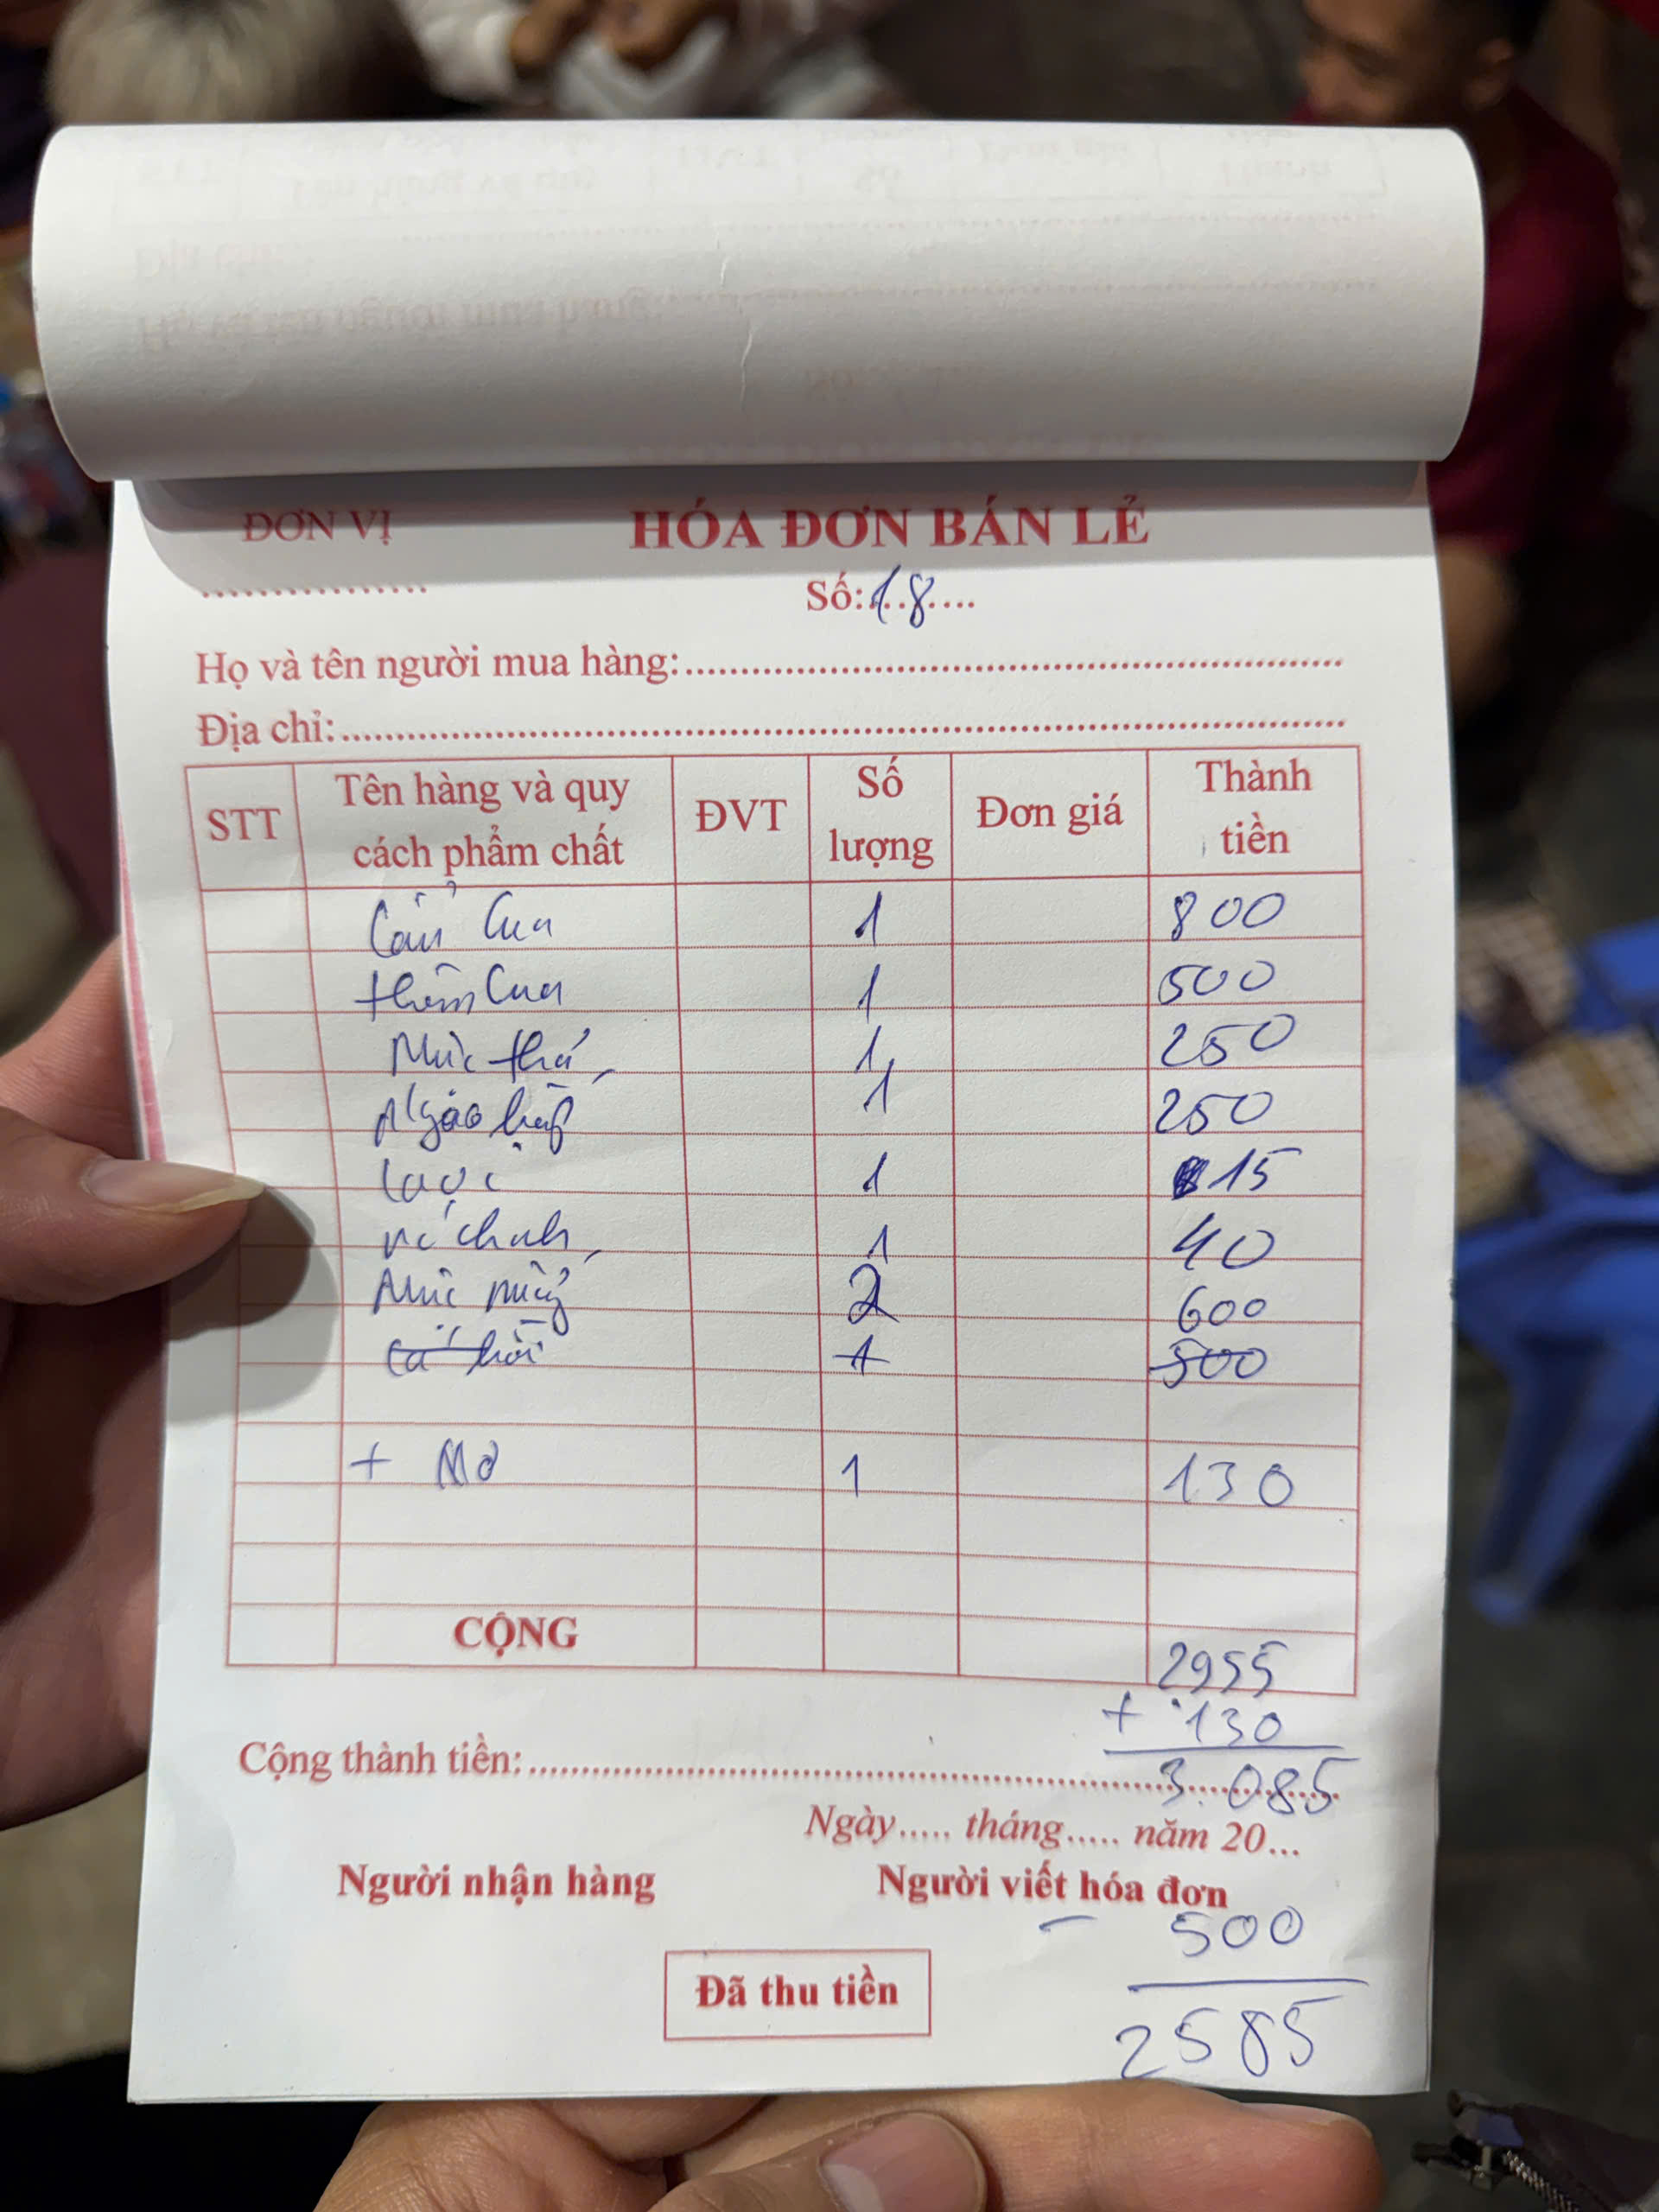 ĐƠN VỊ HÓA ĐƠN BÁN LẺ
Số: 18
Họ và tên người mua hàng:
Địa chỉ:
STT Tên hàng và quy cách phẩm chất ĐVT Số lượng Đơn giá Thành tiền
Cua 1 800
thêm Cua 1 500
Mực 1 250
Ngao hấp 1 250
Lạc 1 15
1 40
Mực 2 600
cá hồi 1 500
+ Mơ 1 130
CỘNG 2955
+ 130
Cộng thành tiền: 3.085
Ngày..... tháng..... năm 20...
Người nhận hàng Người viết hóa đơn
- 500
Đã thu tiền
2585